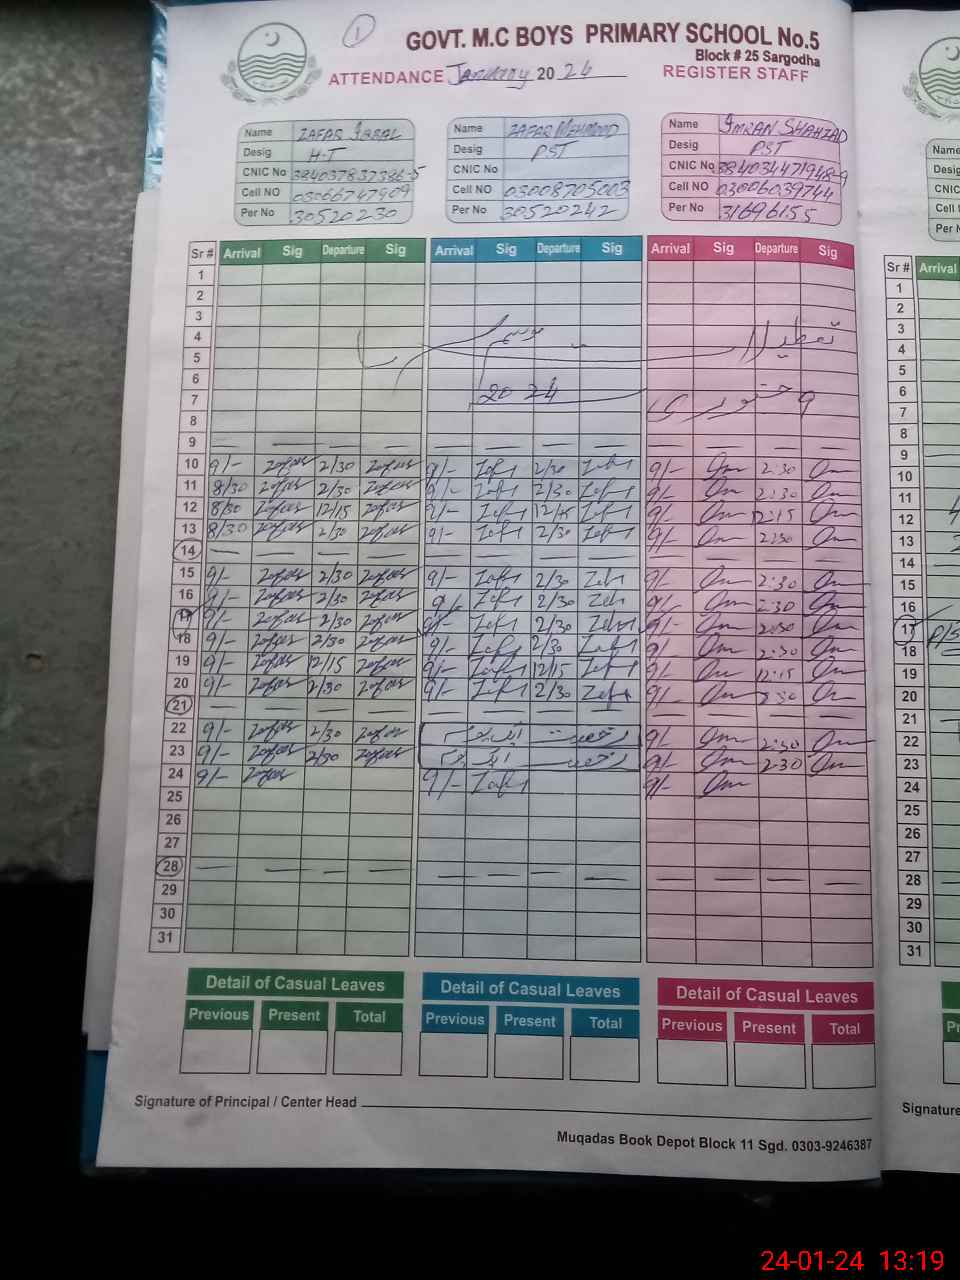 1
GOVT. M.C BOYS PRIMARY SCHOOL No.5
Block # 25 Sargodha
ATTENDANCE January 20 24 REGISTER STAFF
Name ZAFAR IQBAL
Desig H-T
CNIC No 384037837386-5
Cell NO 03066747909
Per No 30520230
Name ZAFAR MEHMOOD
Desig PST
CNIC No
Cell NO 03008705003
Per No 30520242
Name IMRAN SHAHZAD
Desig PST
CNIC No 384034471948-9
Cell NO 03006039744
Per No 31696155
Sr # Arrival Sig Departure Sig Arrival Sig Departure Sig Arrival Sig Departure Sig
1
2
3
4 تعطیلات
5
6
7 9 جنوری 2024
8
9 — — — — — — — — — — — —
10 9/- Zafar 2/30 Zafar 9/- Zafr 2/30 Zafr 9/- Im 2:30 Im
11 8/30 Zafar 2/30 Zafar 9/- Zafr 2/30 Zafr 9/- Im 2:30 Im
12 8/30 Zafar 12/15 Zafar 9/- Zafr 12/15 Zafr 9/- Im 12:15 Im
13 8/30 Zafar 2/30 Zafar 9/- Zafr 2/30 Zafr 9/- Im 2:30 Im
14 — — — — — — — — — — — —
15 9/- Zafar 2/30 Zafar 9/- Zafr 2/30 Zafr 9/- Im 2:30 Im
16 9/- Zafar 2/30 Zafar 9/- Zafr 2/30 Zafr 9/- Im 2:30 Im
17 9/- Zafar 2/30 Zafar 9/- Zafr 2/30 Zafr 9/- Im 2:30 Im
18 9/- Zafar 2/30 Zafar 9/- Zafr 2/30 Zafr 9/- Im 2:30 Im
19 9/- Zafar 12/15 Zafar 9/- Zafr 12/15 Zafr 9/- Im 12:15 Im
20 9/- Zafar 2/30 Zafar 9/- Zafr 2/30 Zafr 9/- Im 2:30 Im
21 — — — — — — — — — — — —
22 9/- Zafar 2/30 Zafar رخصت 9/- Im 2:30 Im
23 9/- Zafar 2/30 Zafar رخصت 9/- Im 2:30 Im
24 9/- Zafar 9/- Zafr 9/- Im
25
26
27
28 — — — — — — — — — — — —
29
30
31
Detail of Casual Leaves Detail of Casual Leaves Detail of Casual Leaves
Previous Present Total Previous Present Total Previous Present Total
Signature of Principal / Center Head
Muqadas Book Depot Block 11 Sgd. 0303-9246387
Name
Desig
CNIC
Cell
Per N
Sr # Arrival
1
2
3
4
5
6
7
8
9
10
11
12
13
14
15
16
17
18
19
20
21
22
23
24
25
26
27
28
29
30
31
Signature
24-01-24 13:19